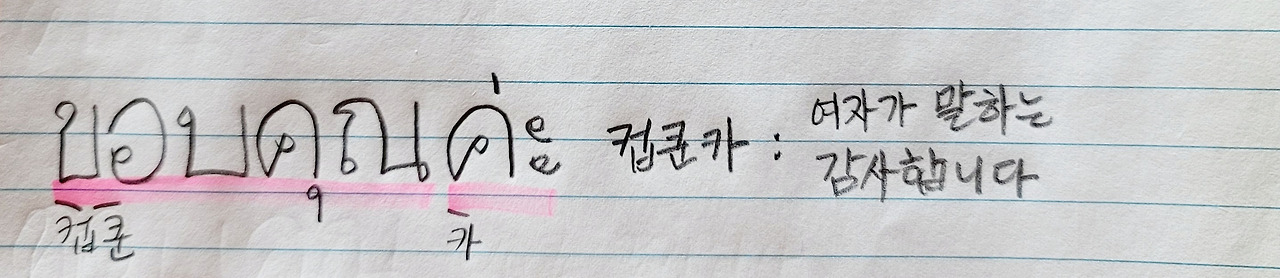 ขอบคุณค่ะ 컵쿤카 : 여자가 말하는
감사합니다
컵쿤 카